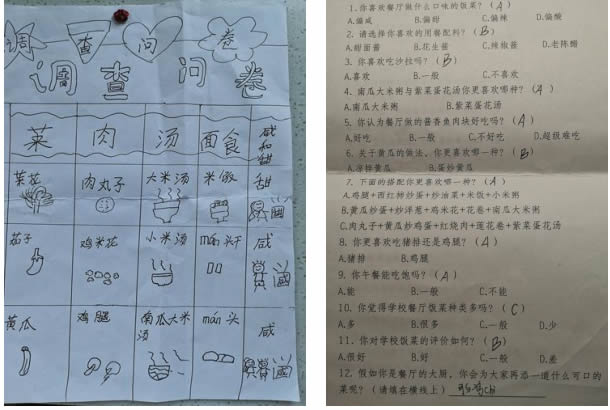 调 查 问 卷
调 查 问 卷
菜 肉 汤 面食 咸和甜
菜花 肉丸子 大米汤 米饭 甜
茄子 鸡米花 小米汤 mán头 咸
黄瓜 鸡腿 南瓜大米汤 mán头 咸
1.你喜欢餐厅做什么口味的饭菜?(A)
A.偏咸 B.偏甜 C.偏辣 D.偏酸
2.请选择你喜欢的用餐配料?(B)
A.甜面酱 B.花生酱 C.辣椒酱 D.老陈醋
3.你喜欢吃沙拉吗?(B)
A.喜欢 B.一般 C.不喜欢
4.南瓜大米粥与紫菜蛋花汤你更喜欢哪种?(A)
A.南瓜大米粥 B.紫菜蛋花汤
5.你认为餐厅做的酱香鱼肉块好吃吗?(A)
A.好吃 B.一般 C.不好吃 D.超级难吃
6.关于黄瓜的做法,你更喜欢哪一种?(B)
A.凉拌黄瓜 B.蛋炒黄瓜
7.下面的搭配你更喜欢哪一种?(A)
A.鸡腿+西红柿炒蛋+炒油菜+米饭+小米粥
B.黄瓜炒蛋+炒洋葱+鸡米花+花卷+南瓜大米粥
C.肉丸子+黄瓜炒鸡蛋+红烧肉+莲花卷+紫菜蛋花汤
8.你更喜欢吃猪排还是鸡腿?(A)
A.猪排 B.鸡腿
9.你午餐能吃饱吗?(A)
A.能 B.一般 C.不能
10.你觉得学校餐厅饭菜种类多吗?(C)
A.多 B.很多 C.一般 D.少
11.你对学校饭菜的评价如何?(B)
A.很好 B.好 C.一般 D.差
12.假如你是餐厅的大厨,你会为大家再添一道什么可口的
菜呢?(请填在横线上)